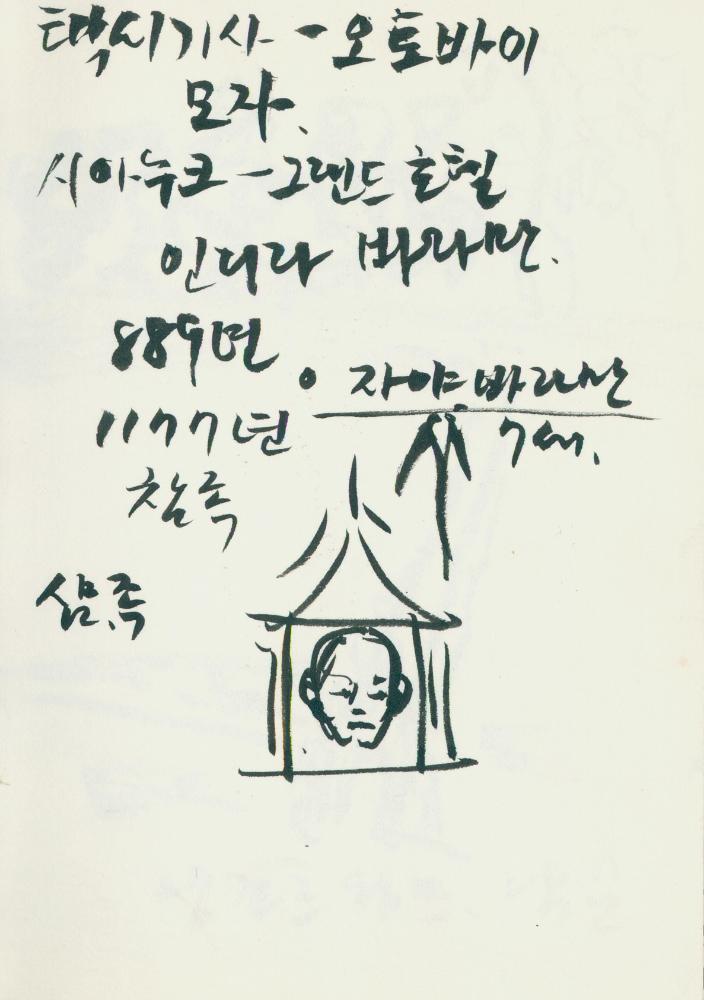 택시기사 - 오토바이
모자.
시아누크 - 그랜드 호텔
인디라 바라만.
889년
• 자야 바라만
7세.
1177년
참족
삼.족